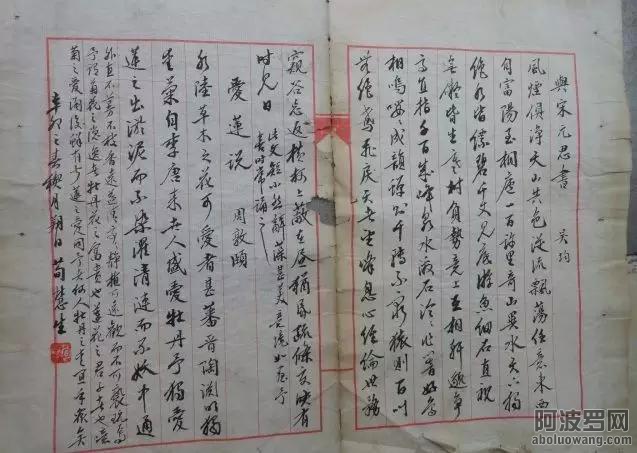 與宋元思書 吳均
風煙俱淨天山共色從流飄蕩任意東西
自富陽至桐廬一百許里奇山異水天下獨
絕水皆縹碧千丈見底游魚細石直視
無礙皆生寒樹負勢競上互相軒邈爭
高直指千百成峰泉水激石泠泠作響好鳥
相鳴嚶嚶成韻蟬則千轉不窮猿則百叫
無絕鳶飛戾天者望峰息心經綸世務
窺谷忘返橫柯上蔽在晝猶昏疏條交映有
時見日
此文短小然辭藻甚美意境如在予
喜時常誦之
愛蓮說 周敦頤
水陸草木之花可愛者甚蕃晉陶淵明獨
愛菊自李唐來世人盛愛牡丹予獨愛
蓮之出淤泥而不染濯清漣而不妖中通
外直不蔓不枝香遠益清亭亭靜植可遠觀而不可褻玩焉
予謂菊花之隱逸者牡丹花之富貴者也蓮花之君子者也噫
菊之愛陶後鮮有聞蓮之愛同予者何人牡丹之愛宜乎眾矣
辛卯之春月朔日荀慧生
阿波罗网
aboluowang.com